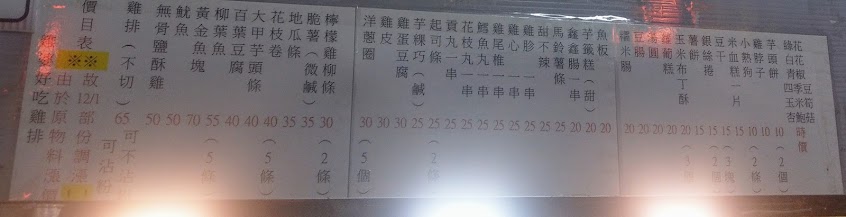 好吃雞排
由於原物料漲價
價目表※※故12/1部份調漲
雞排(不切) 65 可沾粉
無骨鹽酥雞 50
魷魚 50
黃金魚塊 70
柳葉魚 55(5條)
百葉豆腐 40
大甲芋頭條 40
花枝卷 40(5條)
地瓜條 35
脆薯(微鹹) 35
檸檬雞柳條 30(2條)
洋蔥圈 30(5個)
雞皮 30
雞蛋豆腐 30
芋粿巧(鹹) 25
起司條 25(2條)
貢丸一串 20
花枝丸一串 20
鱈魚丸一串 20
雞尾椎一串 20
雞心一串 20
雞胗一串 20
甜不辣 20
馬鈴薯條 20
鑫鑫腸一串 20
芋籤糕(甜) 20
魚板 20
糯米腸 20
20
20
20
玉米布丁酥 20
薯餅 15
銀絲捲 15
豆干 15
米血糕一片 15
小熱狗 10
雞脖子 10
芋頭餅 10(2個)
綠花椰 時價